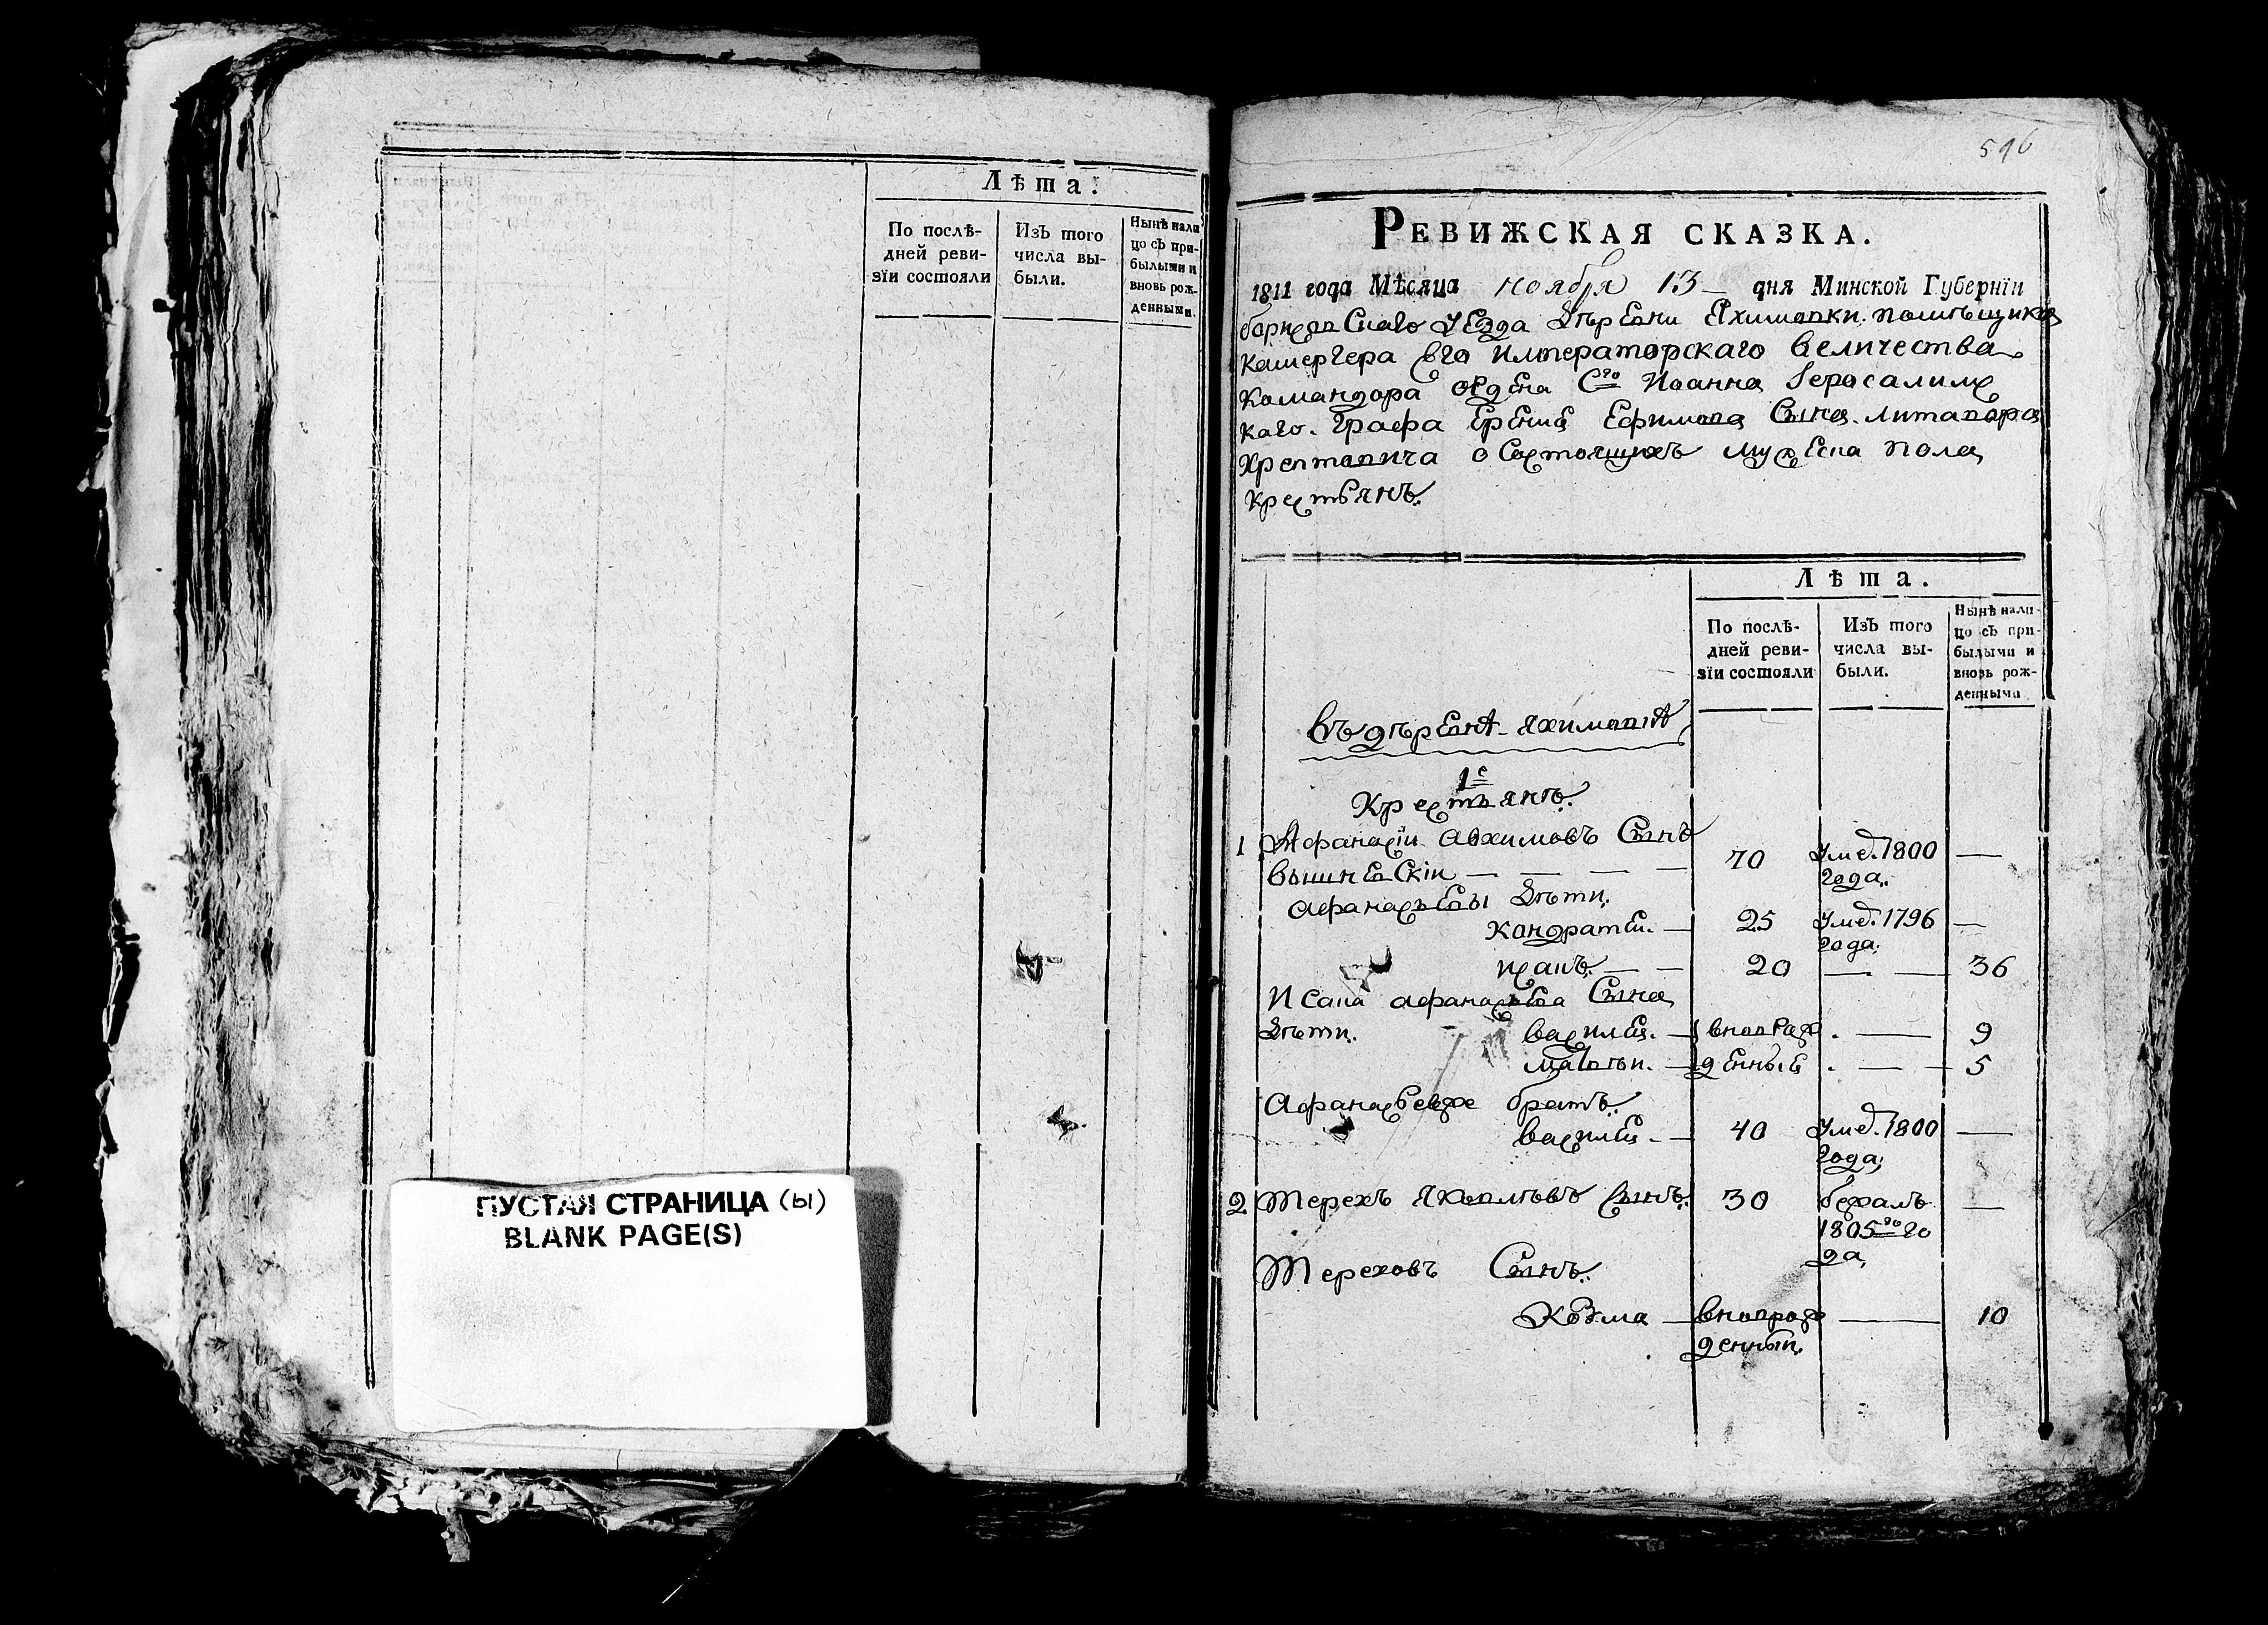 Лѣта.
По послѣ-
дней реви-
зїи состояли
ИзЪ того
числа вы-
были.
Нынѣ нали
цо сЪ при-
былыми и
вновь рож-
денными.
ПУСТАЯ СТРАНИЦА (ы)
BLANK PAGE(S)
596
РЕВИЖСКАЯ СКАЗКА.
1811 года Мѣсяца ноября 13 дня Минской Губернїи
борисовскаго уезда дѣревни Яхимовки. помѣщика
камергера Его императорскаго величества
командора ордена Сго Иоанна Іеросалимс
каго. Графа Еремѣ Ефимова Сына. литавора
Хрептовича о Состоящихъ мужеска пола
крестьянъ.
Лѣта.
По послѣ-
дней реви-
зїи состояли
ИзЪ того
числа вы-
были.
Нынѣ нали-
цо сЪ при-
былыми и
вновь рож-
денными
въ дѣревнѣ яхимовкѣ
1е
Крестьянъ.
1 Афанасіи авхимовъ Сынъ 70 Умѣ. 1800 —
вышнеВскіи — — — — года.
афанасьевы дѣти.
кондратеи. — 25 Умѣ. 1796 —
года.
исавъ. — — 20 — — 36
Исава афанасьева Сына
дѣти. василеи. — внов рож . — 9
матвѣи. — денные . — — 5
Афанасьевже братъ.
василеи — 40 Умѣ. 1800 —
года,
2 Терехъ яковлѣвъ Сынъ. 30 бежалъ —
1805го го
да
Тереховъ Сынъ.
Козма — вноврож — 10
денный.